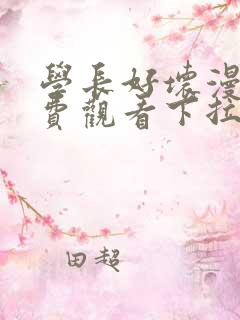 學長好壞漫
費觀看下拉
田超